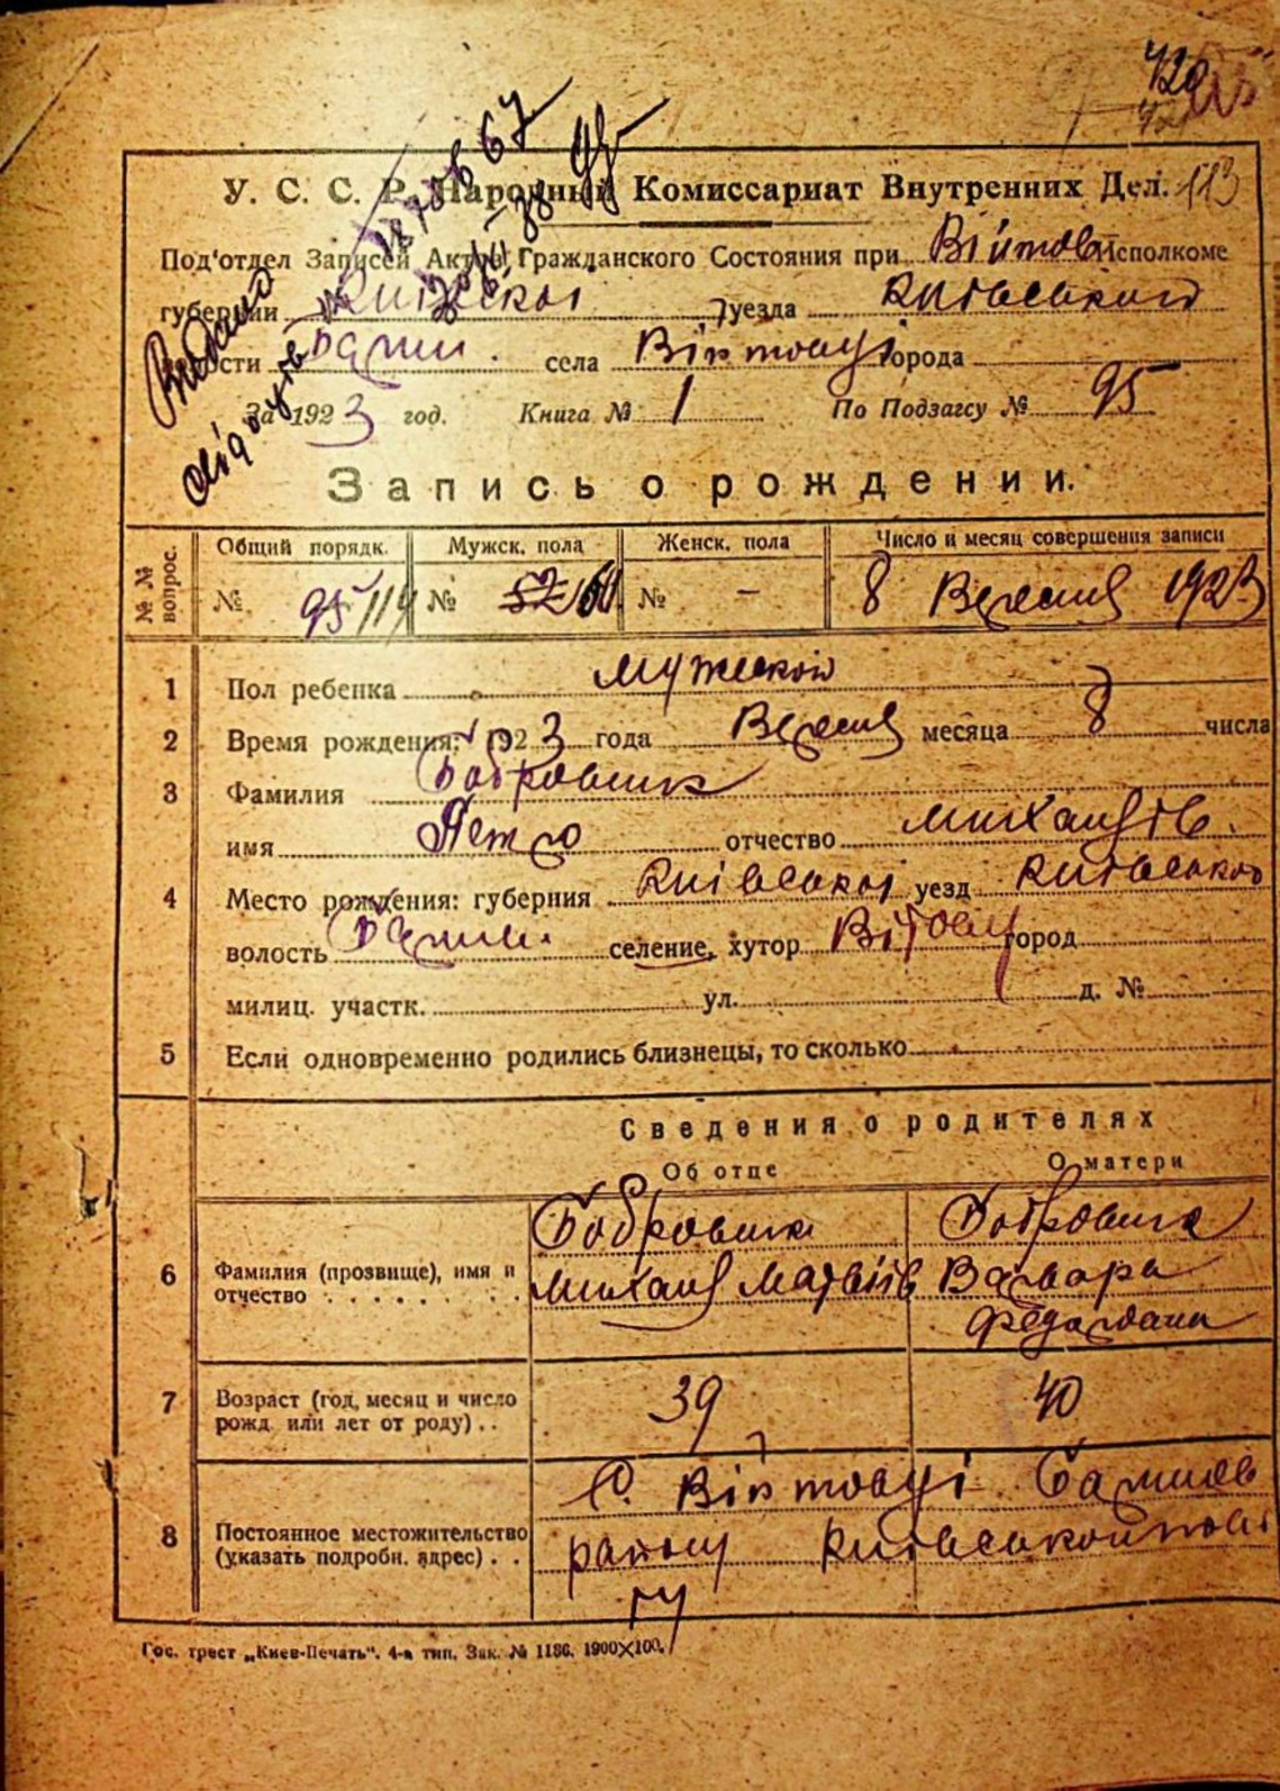 420
113
У. С. С. Р. Народный Комиссариат Внутренних Дел.
Под'отдел Записей Актов Гражданского Состояния при Війтов Исполкоме
губернии Київської уезда Київського
волости села Війтовці города
За 1923 год. Книга № 1 По Подзагсу № 95
Видано
Запись о рождении.
№№ вопрос. Общий порядк. Мужск. пола Женск. пола Число и месяц совершения записи
№ 95/114 № 57/61 № - 8 Вересня 1923
1 Пол ребенка мужской
2 Время рождения: 1923 года Вересня месяца 8 числа
3 Фамилия Бобровник
имя Петро отчество Михайлів.
4 Место рождения: губерния Київської уезд Київського
волость селение, хутор город
милиц. участк. ул. д. №
5 Если одновременно родились близнецы, то сколько
Сведения о родителях
Об отце О матери
Бобровник Бобровник
6 Фамилия (прозвище), имя и отчество Михайло Матвіїв Варвара
Федоровна
7 Возраст (год, месяц и число рожд. или лет от роду) 39 40
С. Війтовці
8 Постоянное местожительство (указать подробн. адрес) району Київської
Гос. трест „Киев-Печать". 4-я тип. Зак. № 1186. 1900×100.